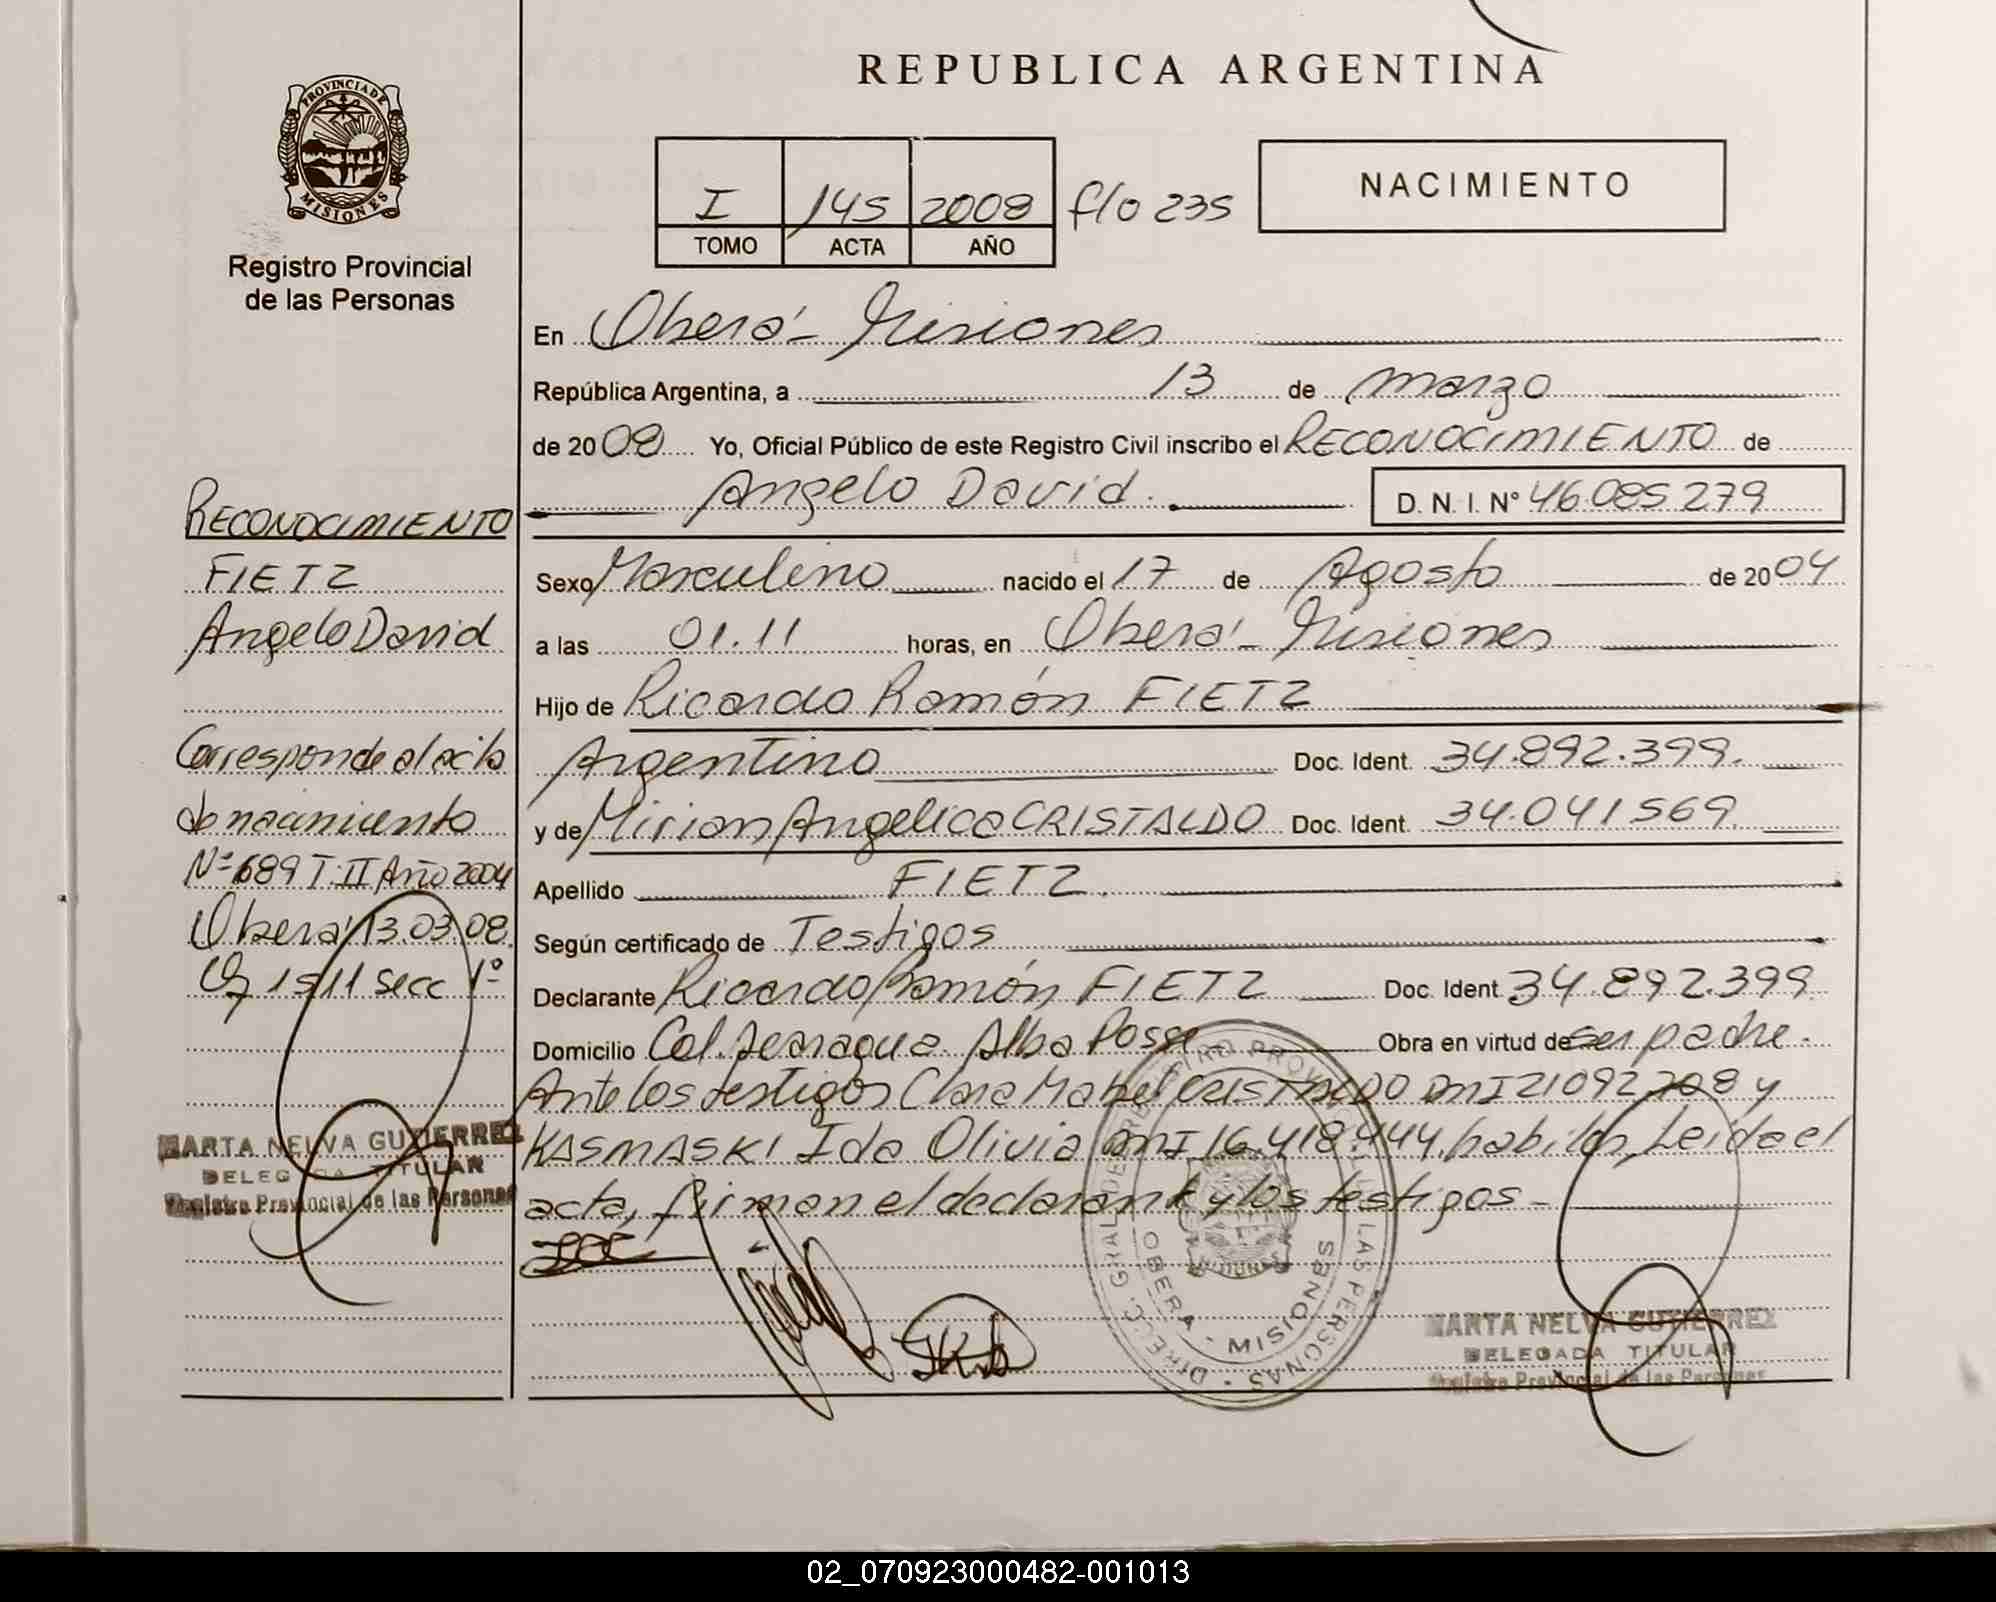 REPUBLICA ARGENTINA
PROVINCIA DE
MISIONES
Registro Provincial
de las Personas
I 145 2008 f/o 235
TOMO ACTA AÑO
NACIMIENTO
En Oberá - Misiones
República Argentina, a 13 de marzo
de 2008 Yo, Oficial Público de este Registro Civil inscribo el RECONOCIMIENTO de
Angelo David. D. N. I. N° 46.085 279
Sexo Masculino nacido el 17 de Agosto de 2004
a las 01.11 horas, en Oberá - Misiones
Hijo de Ricardo Ramón FIETZ
Argentino Doc. Ident. 34.892.399.
y de Mirian Angelica CRISTALDO Doc. Ident. 34.041 569.
Apellido FIETZ.
Según certificado de Testigos
Declarante Ricardo Ramón FIETZ Doc. Ident. 34.892.399.
Domicilio Col. Alba Posse Obra en virtud de ser padre.
Ante los testigos Clara Mabel CRISTALDO DNI 21 092 208 y
KASMASKI Ida Olivia DNI 16.418.444, habiles, Leida el
acta, firman el declarante y los testigos -
RECONOCIMIENTO
FIETZ
Angelo David
Corresponde al acta
de nacimiento
N° 689 T. II Año 2004
Oberá 13.03.08.
1511 secc 1°
MARTA NELVA GUTIERREZ
DELEGADA TITULAR
Registro Provincial de las Personas
DIRECC. GRAL. DE REGISTRO PROVINCIAL DE LAS PERSONAS
OBERA - MISIONES
MARTA NELVA GUTIERREZ
DELEGADA TITULAR
Registro Provincial de las Personas
02_070923000482-001013